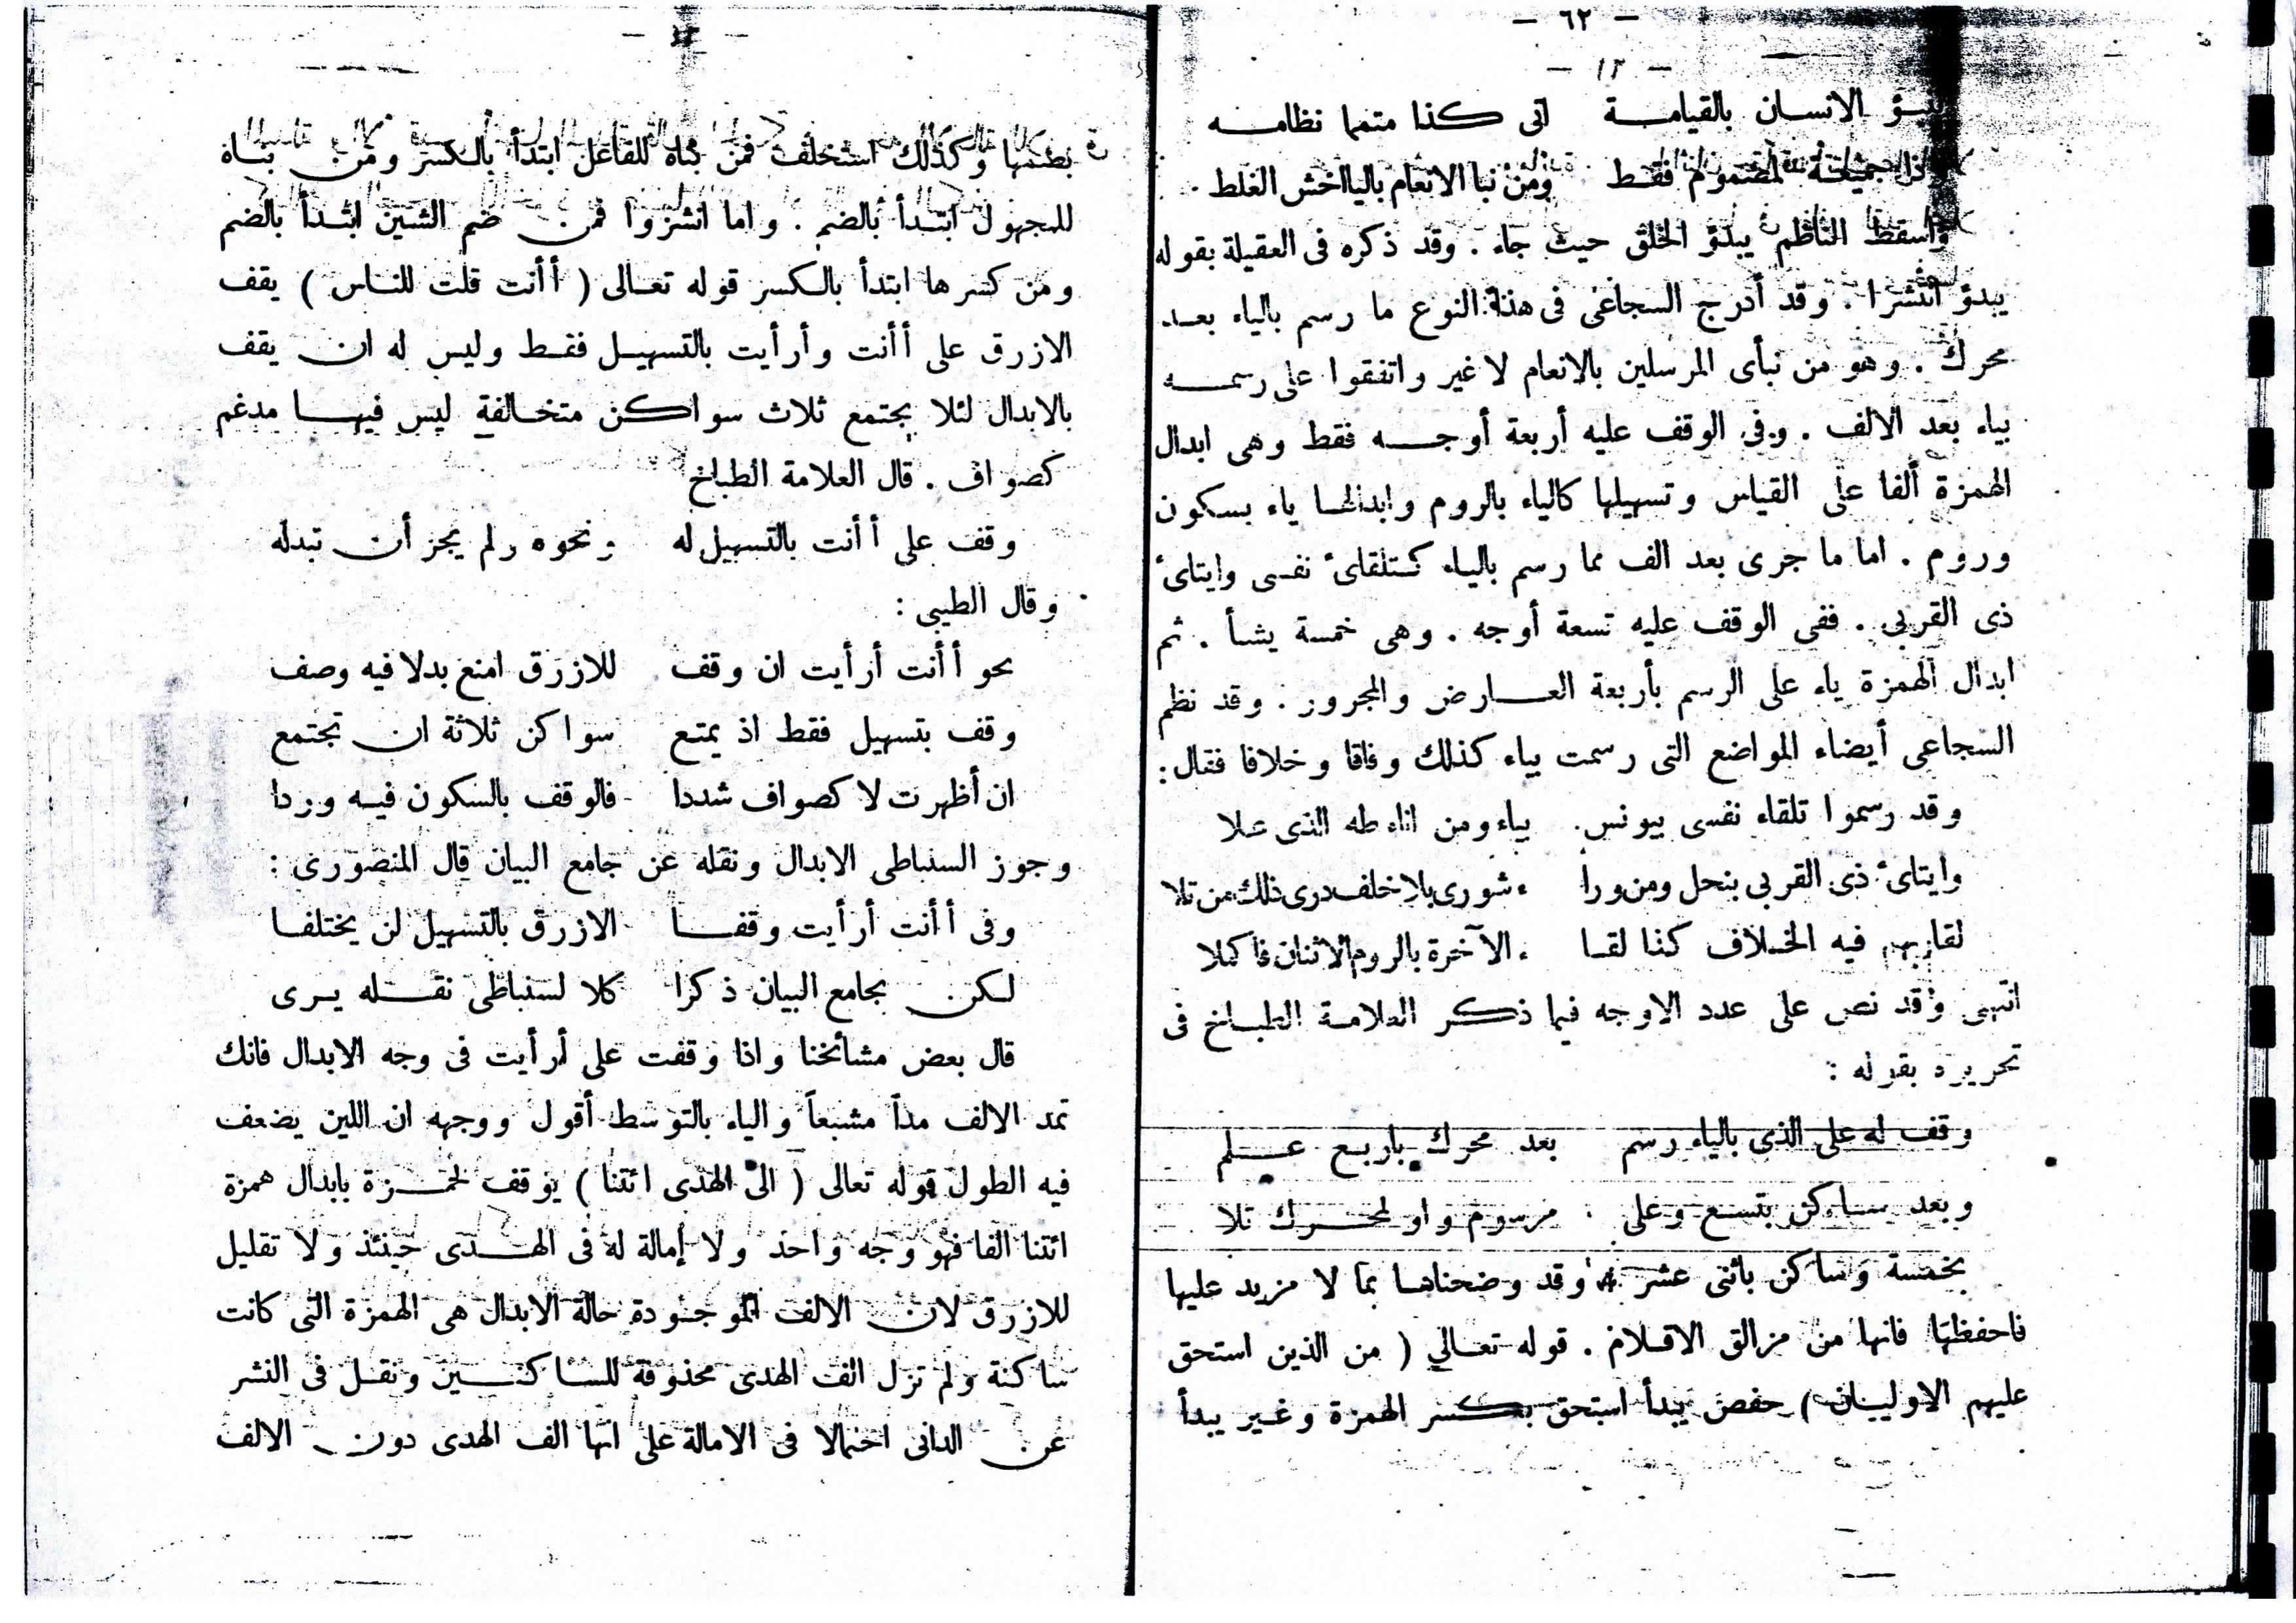 — ٦٢ —
— ١٢ —
الانسان بالقيامـــة اتى كذا متمما نظامـــه
فقط ومن نبا الانعام بالياافحش الغلط .
واسقط الناظم يبدؤ الخلق حيث جاء . وقد ذكره فى العقيلة بقوله
يبدؤ انتشرا . وقد أدرج السجاعى فى هذا النوع ما رسم بالياء بعـد
محرك . وهو من نبأى المرسلين بالانعام لا غير واتفقوا على رسمـــه
بياء بعد الالف . وفى الوقف عليه أربعة أوجـــه فقط وهى ابدال
الهمزة ألفا على القياس وتسهيلها كالياء بالروم وابدالها ياء بسكون
وروم . اما ما جرى بعد الف مما رسم بالياء كتلقائ نفسى وايتائ
ذى القربى . ففى الوقف عليه تسعة أوجه . وهى خمسة يشأ . ثم
ابدال الهمزة ياء على الرسم بأربعة العـــارض والمجرور . وقد نظم
السجاعى أيضاء المواضع التى رسمت بياء كذلك وفاقا وخلافا فقال :
وقد رسموا تلقاء نفسى بيونس . بياء ومن اناء طه الذى عـلا
وايتائ ذى القربى بنحل ومن ورا ء شورى بلا خلف درى ذلك من تلا
لقا ربهم فيه الخـلاف كذا لقـا ء الآخرة بالروم الاثنان فاكملا
انتهى وقد نص على عدد الاوجه فيما ذكـر العلامـة الطبـاخ فى
تحريره بقوله :
وقف له على الذى بالياء رسم بعد محرك باربـع عـــلم
وبعد ســاكن بتسـع وعلى مرسوم واو لمحـــرك تلا
بخمسة وساكن باثنى عشر . وقد وضحناهـا بما لا مزيد عليها
فاحفظها فانها من مزالق الاقـلام . قوله تعـالى ( من الذين استحق
عليهم الاوليـان ) حفص يبدأ استحق بكسر الهمزة وغـير يبدأ
بضمها وكذلك استخلف فمن بناه للفاعل ابتدأ بالكسر ومن بنـاه
للمجهول ابتـدأ بالضم . واما انشزوا فمن ضم الشين ابتـدأ بالضم
ومن كسرها ابتدأ بالكسر قوله تعـالى ( أأنت قلت للنـاس ) يقف
الازرق على أأنت وأرأيت بالتسهيـل فقـط وليس له ان يقف
بالابدال لئلا يجتمع ثلاث سواكن متخـالفة ليس فيهـا مدغم
كصواف . قال العلامة الطباخ
وقف على أأنت بالتسهيل له ونحوه ولم يجز أن تبدله
وقال الطيبى :
نحو أأنت أرأيت ان وقف للازرق امنع بدلا فيه وصف
وقف بتسهيل فقط اذ يمتنع سواكن ثلاثة ان تجتمع
ان أظهرت لا كصواف شددا فالوقف بالسكون فيـه وردا
وجوز السنباطى الابدال ونقله عن جامع البيان قال المنصورى :
وفى أأنت أرأيت وقفـــا الازرق بالتسهيل لن يختلفـا
لـكن بجامع البيان ذكرا كلا لسنباطى نقـــله يـرى
قال بعض مشائخنا واذا وقفت على أرأيت فى وجه الابدال فانك
تمد الالف مداً مشبعاً والياء بالتوسط أقول ووجهه ان اللين يضعف
فيه الطول قوله تعالى ( الى الهدى ائتنا ) يوقف لحمـــزة بابدال همزة
ائتنا الفا فهو وجه واحد ولا إمالة له فى الهـــدى حينئذ ولا تقليل
للازرق لان الالف الموجودة حالة الابدال هى الهمزة التى كانت
ساكنة ولم تزل الف الهدى محذوفة للساكنـــين ونقـل فى النشر
عن الدانى احتمالا فى الامالة على انها الف الهدى دون الالف